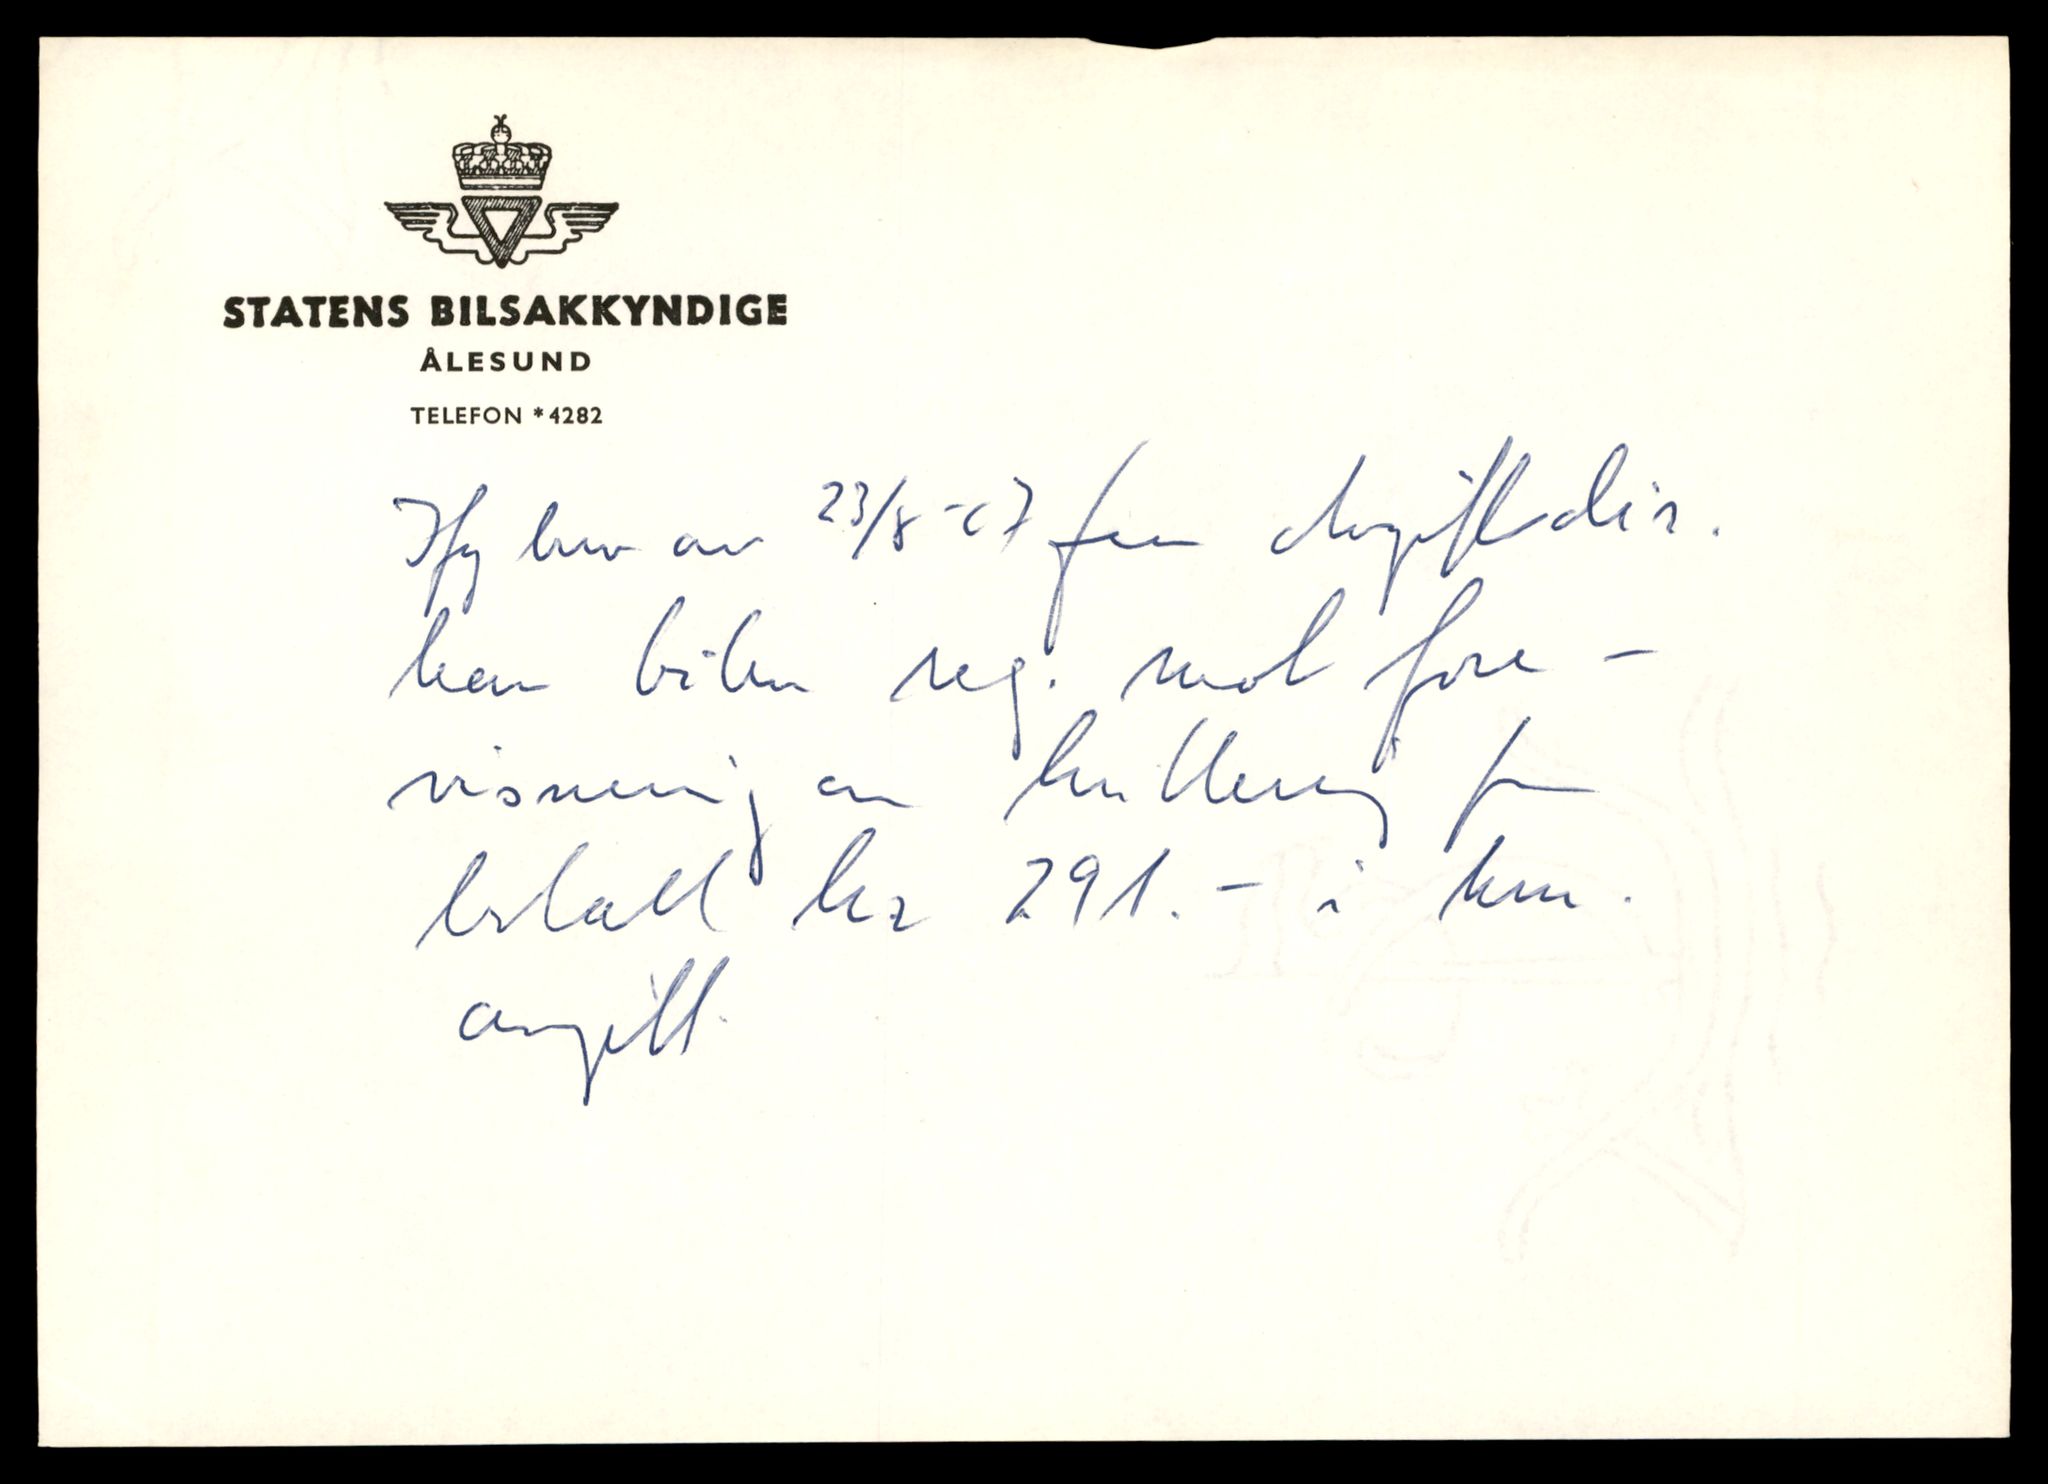 STATENS BILSAKKYNDIGE
ÅLESUND
TELEFON *4282
Ifg brev av 23/8-67 fra Avgiftsdir.
kan bilen reg. mot fore-
visning av kvittering for
betalt kr 291.- i
avgift.